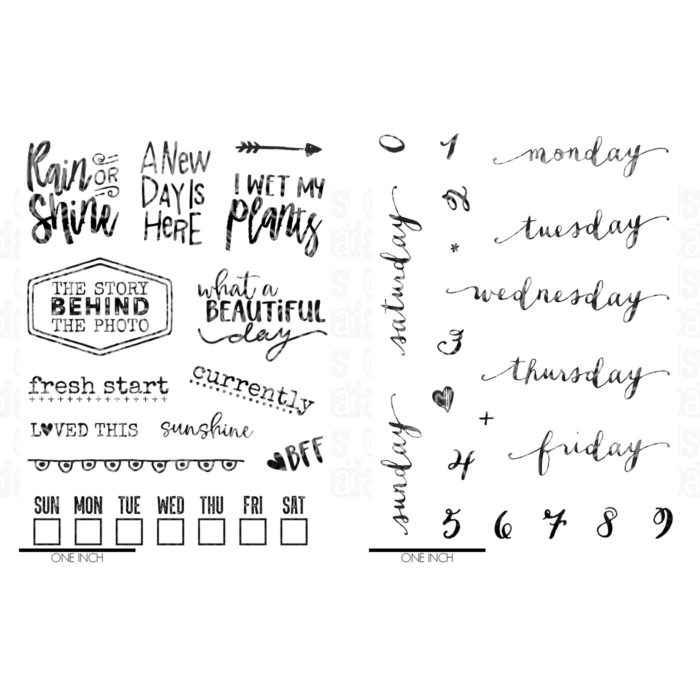 Rain OR
Shine
A NEW
DAY IS
HERE
I WET MY
plants
THE STORY
BEHIND
THE PHOTO
what a
BEAUTIFUL
day
fresh start
currently
LOVED THIS
sunshine
BFF
SUN MON TUE WED THU FRI SAT
ONE INCH
0 1
monday
2
tuesday
saturday
*
wednesday
3
thursday
+
sunday
4
friday
5 6 7 8 9
ONE INCH